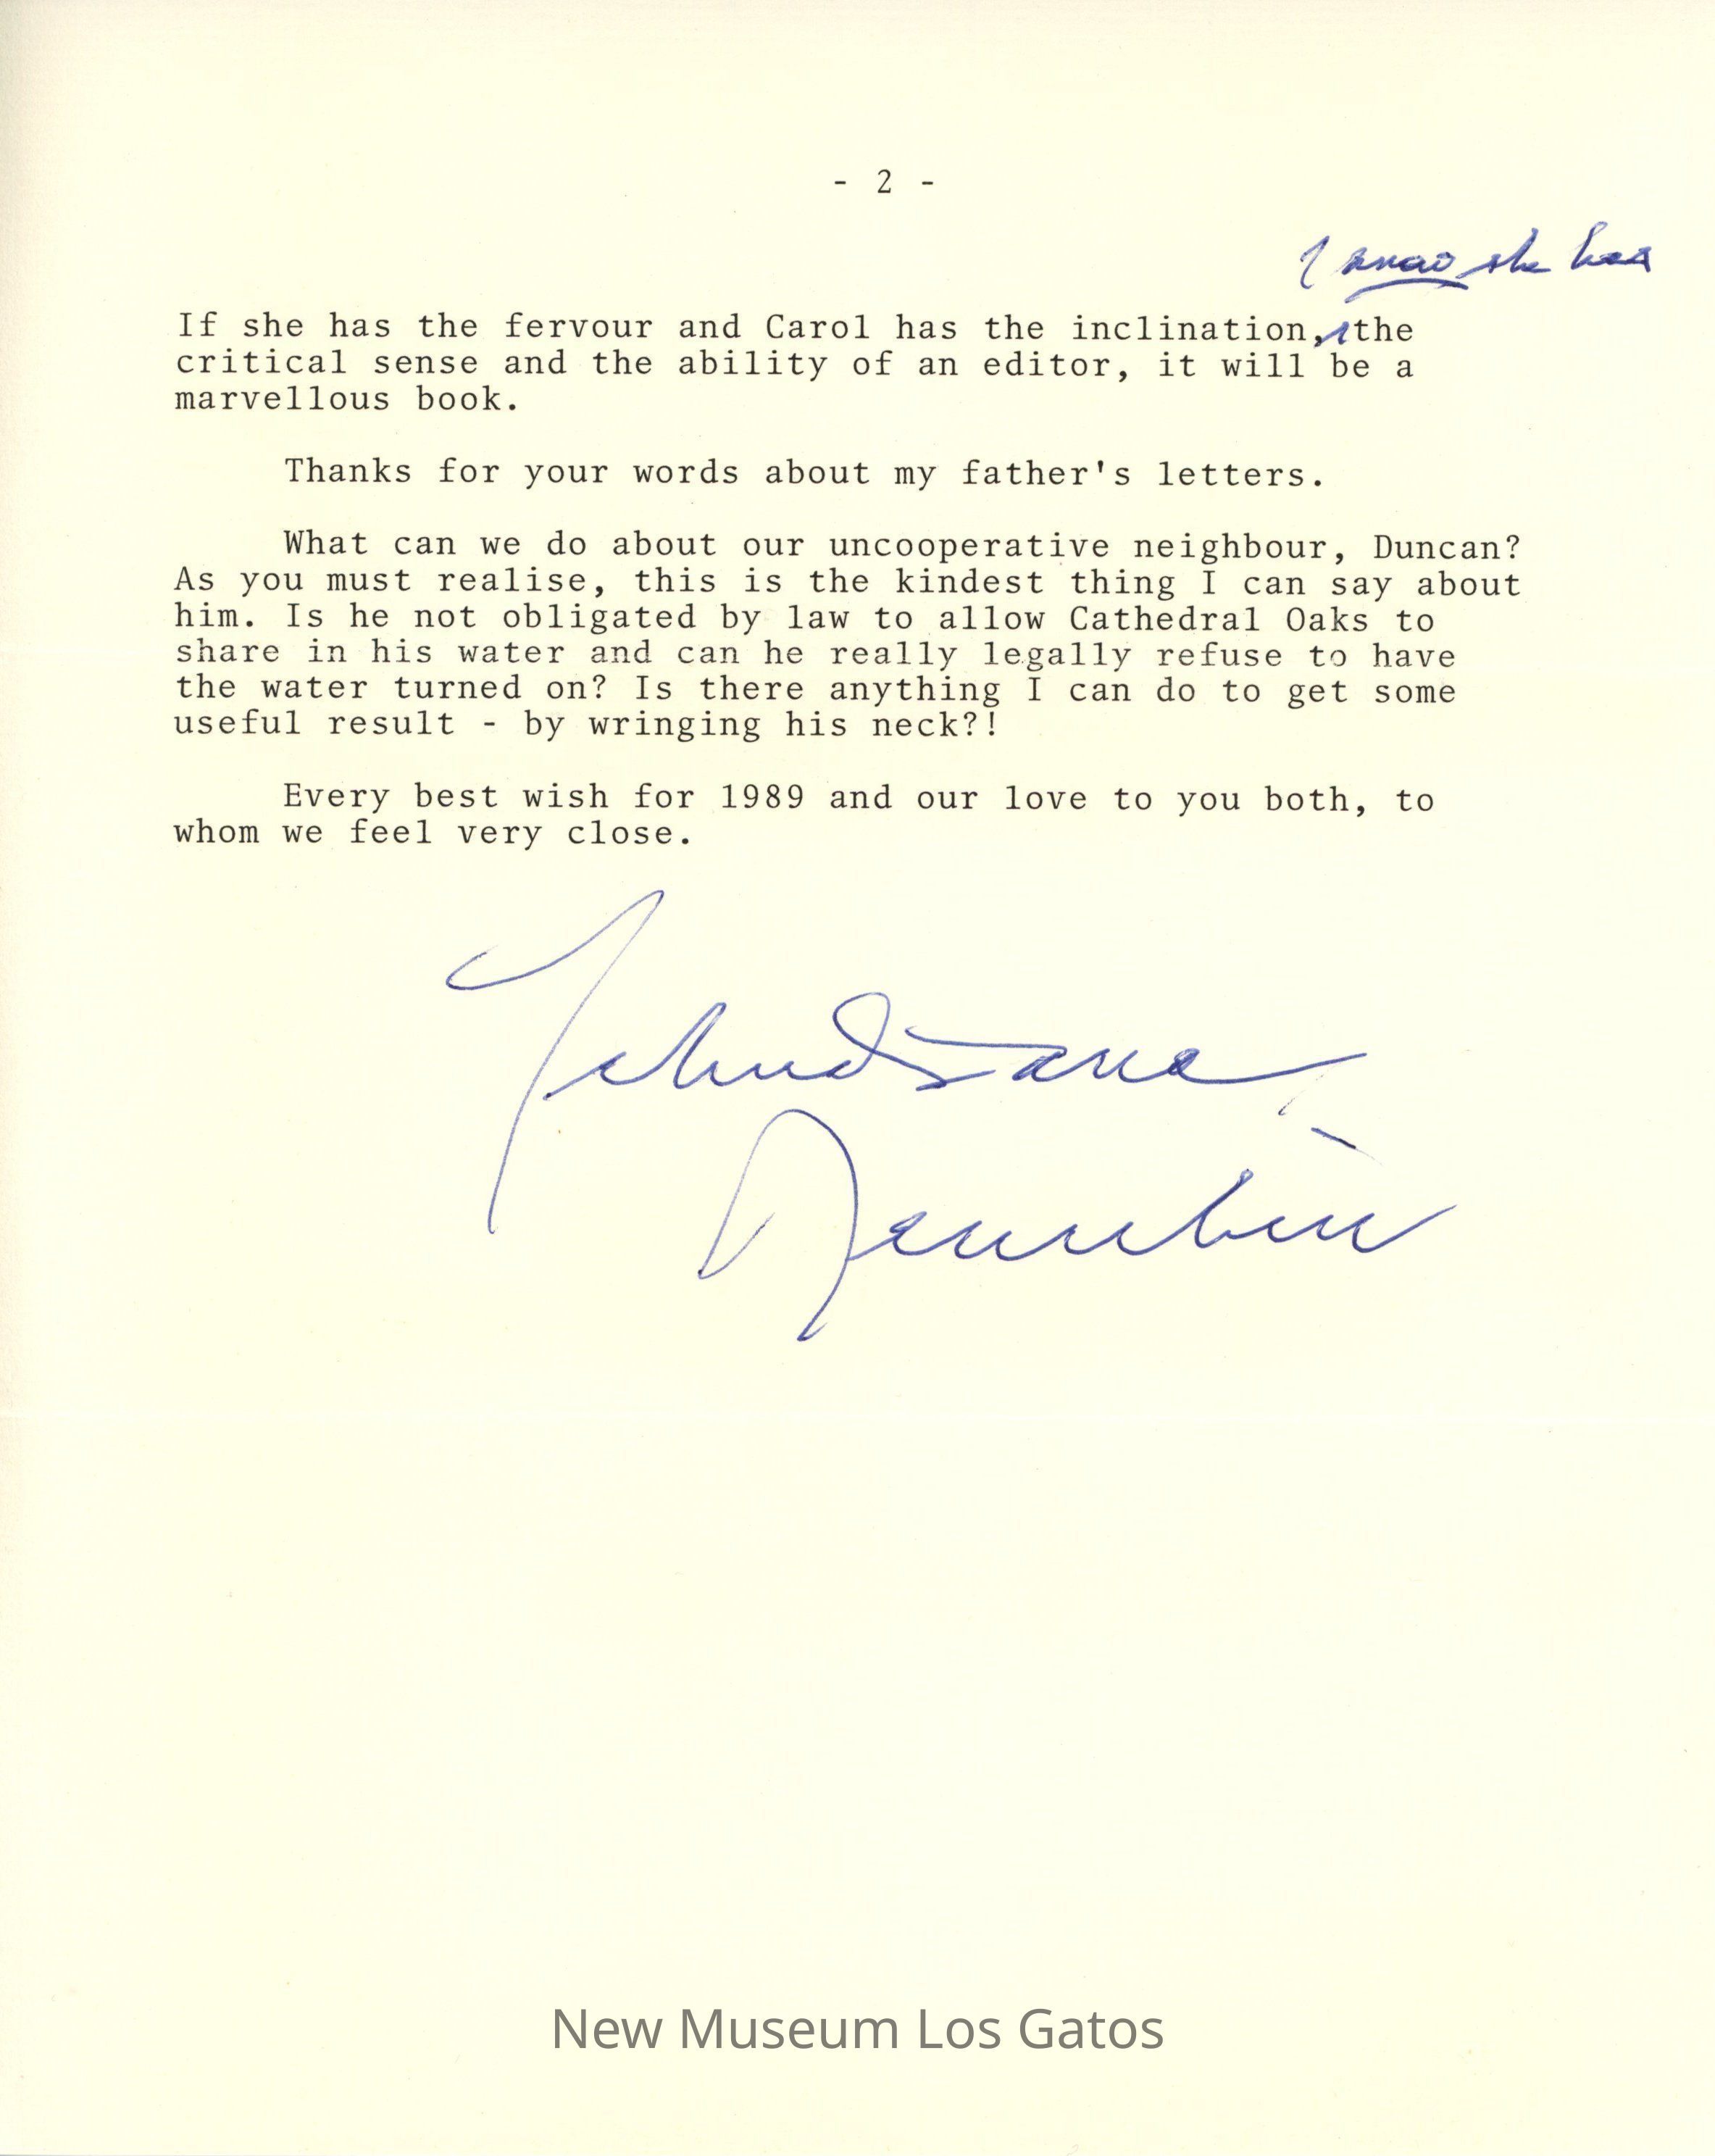 - 2 -
I know she has
If she has the fervour and Carol has the inclination, the
critical sense and the ability of an editor, it will be a
marvellous book.
Thanks for your words about my father's letters.
What can we do about our uncooperative neighbour, Duncan?
As you must realise, this is the kindest thing I can say about
him. Is he not obligated by law to allow Cathedral Oaks to
share in his water and can he really legally refuse to have
the water turned on? Is there anything I can do to get some
useful result - by wringing his neck?!
Every best wish for 1989 and our love to you both, to
whom we feel very close.
New Museum Los Gatos